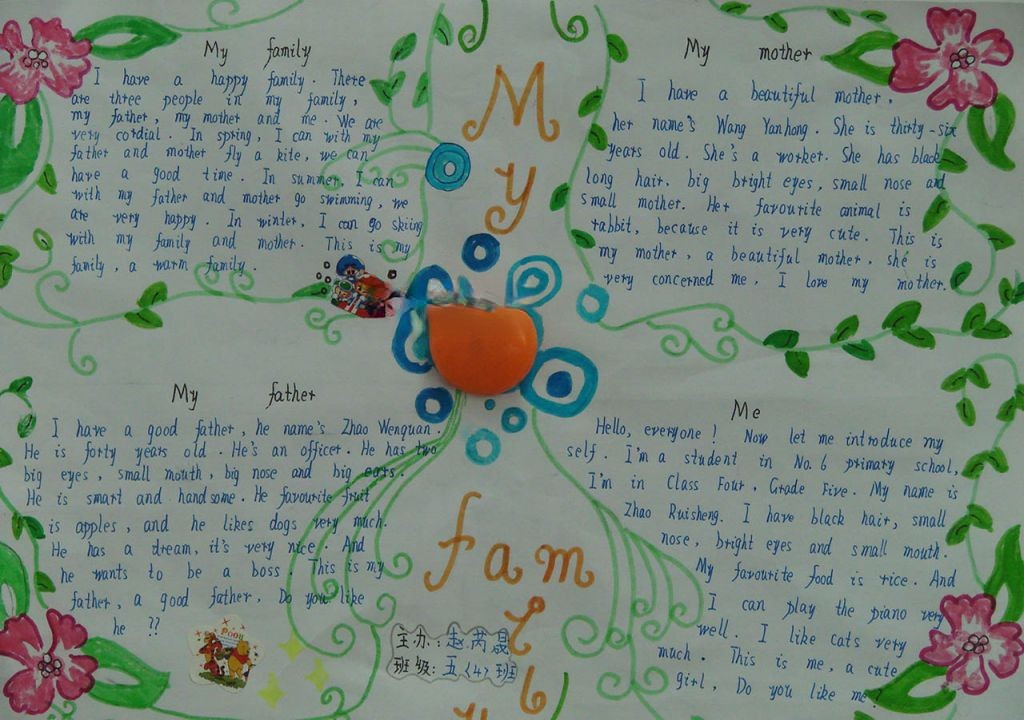 My family
I have a happy family. There
are three people in my family,
my father, my mother and me. We are
very cordial. In spring, I can with my
father and mother fly a kite, we can
have a good time. In summer, I can
with my father and mother go swimming, we
are very happy. In winter, I can go skiing
with my family and mother. This is my
family, a warm family.
My
family
My mother
I have a beautiful mother,
her name's Wang Yanhong. She is thirty-six
years old. She's a worker. She has black
long hair. big bright eyes, small nose and
small mother. Her favourite animal is
rabbit, because it is very cute. This is
my mother, a beautiful mother, she is
very concerned me, I love my mother.
My father
I have a good father, he name's Zhao Wenquan.
He is forty years old. He's an officer. He has two
big eyes, small mouth, big nose and big ears.
He is smart and handsome. He favourite fruit
is apples, and he likes dogs very much.
He has a dream, it's very nice. And
he wants to be a boss. This is my
father, a good father, Do you like
he ??
Pooh
主办:赵芮晟
班级:五〈4〉班
Me
Hello, everyone! Now let me introduce my
self. I'm a student in No. 6 primary school,
I'm in Class Four, Grade Five. My name is
Zhao Ruisheng. I have black hair, small
nose, bright eyes and small mouth.
My favourite food is rice. And
I can play the piano very
well. I like cats very
much. This is me, a cute
girl, Do you like me?